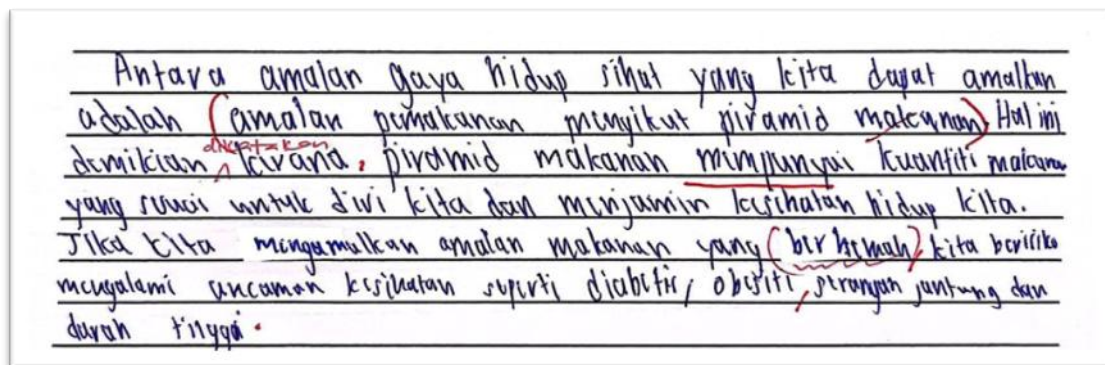 Antara amalan gaya hidup sihat yang kita dapat amalkan
adalah (amalan pemakanan mengikut piramid makanan) Hal ini
dikatakan
demikian ^ kerana, piramid makanan mempunyai kuantiti makanan
yang sesuai untuk diri kita dan menjamin kesihatan hidup kita.
Jika kita mengamalkan amalan makanan yang (berhemah), kita berisiko
mengalami ancaman kesihatan seperti diabetis, obesiti, serangan jantung dan
darah tinggi.